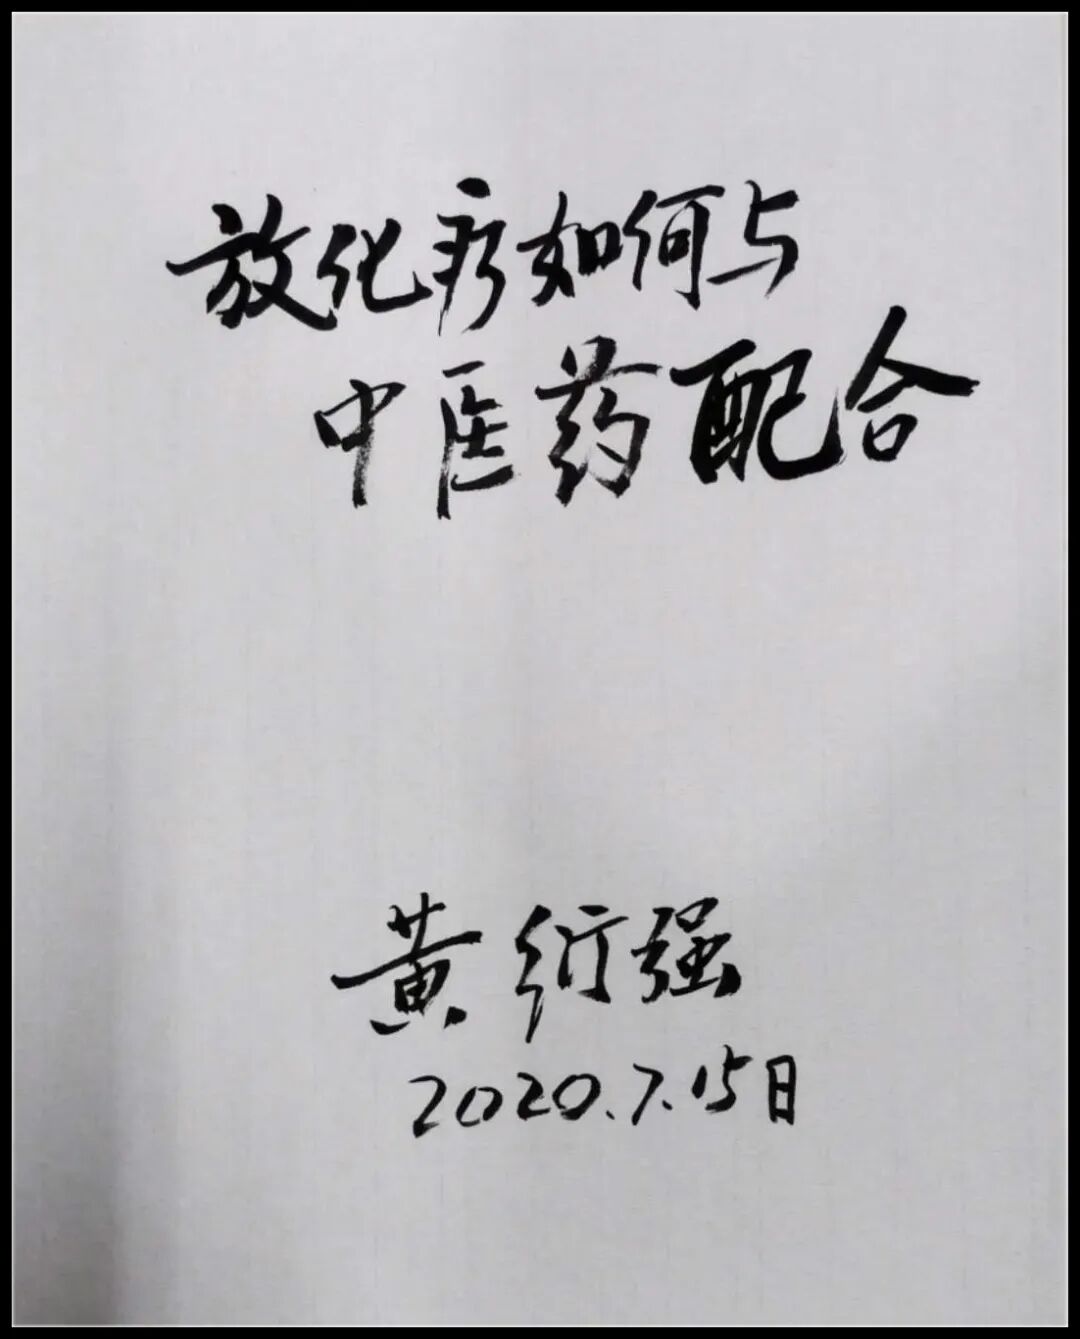 放化疗如何与
中医药配合
黄衍强
2020.7.15日